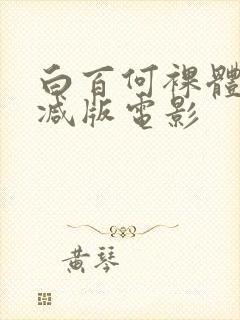 白百何裸體
减版電影
黄琴